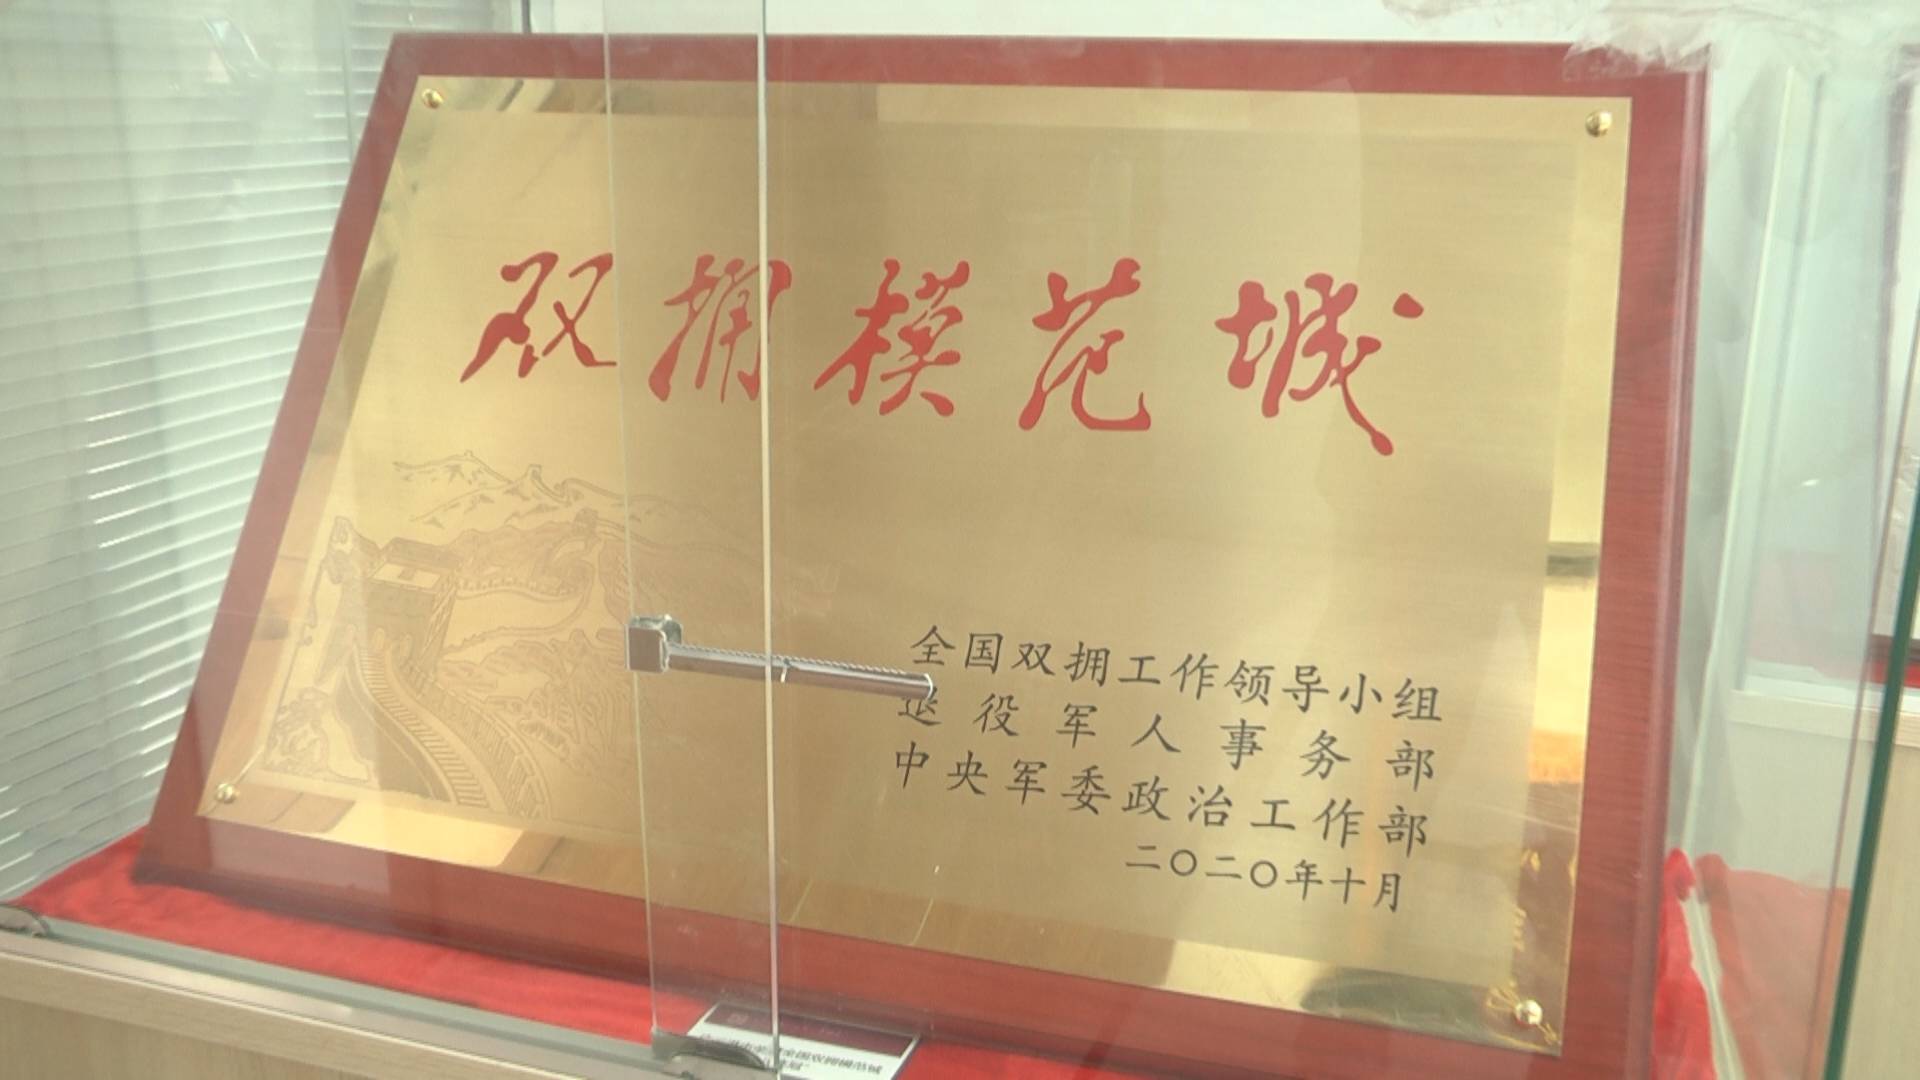 双拥模范城
全国双拥工作领导小组
退役军人事务部
中央军委政治工作部
二〇二〇年十月
全国双拥模范城